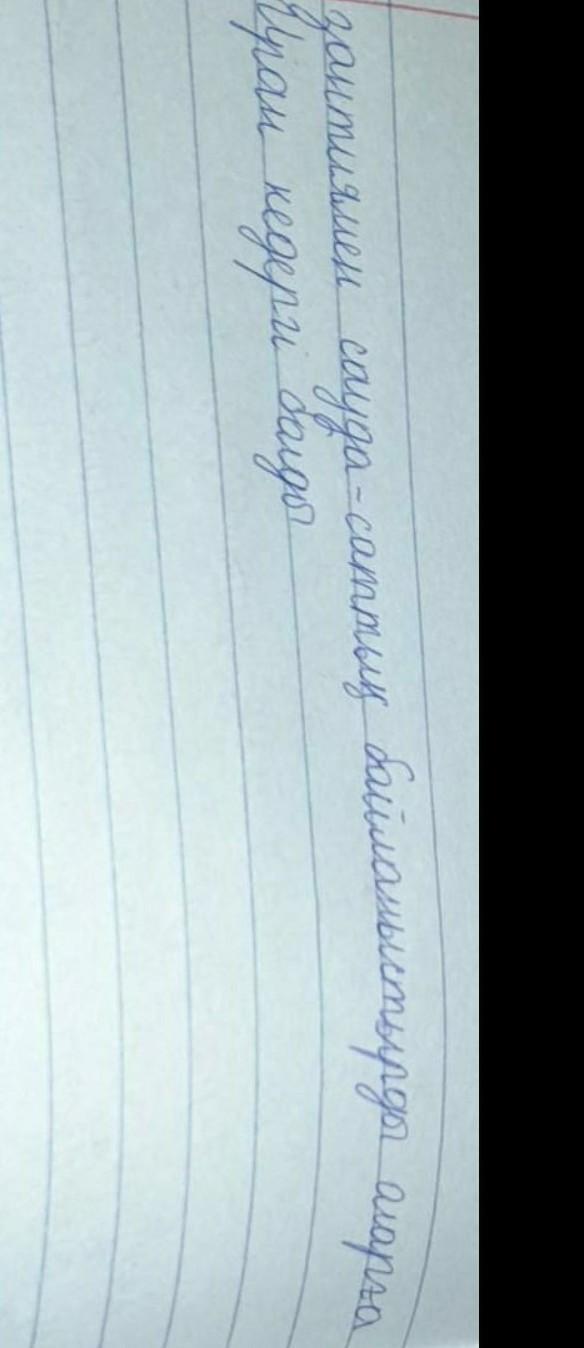 зантиямен сауда-саттық байланыстырды аларға
Иран кедергі болды